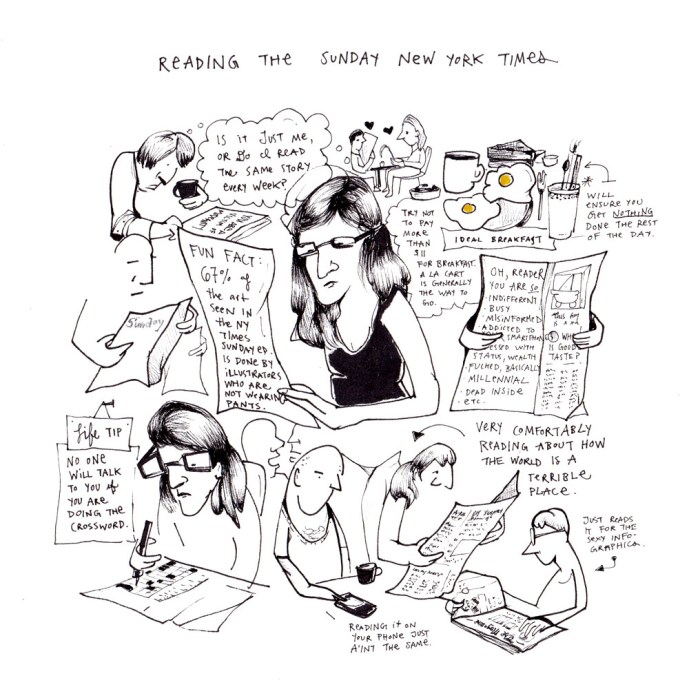 READING THE SUNDAY NEW YORK TIMES
IS IT JUST ME,
OR DO I READ
THE SAME STORY
EVERY WEEK?
WILL
ENSURE YOU
GET NOTHING
DONE THE REST
OF THE DAY.
IDEAL BREAKFAST
TRY NOT
TO PAY
MORE
THAN
$11
FOR BREAKFAST.
A LA CART
IS GENERALLY
THE WAY TO
GO.
FUN FACT:
67% of
the art
SEEN IN
the NY
TIMES
SUNDAY ED.
IS DONE BY
ILLUSTRATORS
WHO ARE
NOT WEARING
PANTS.
Sunday
OH, READER
YOU ARE SO
INDIFFERENT
BUSY
MISINFORMED
ADDICTED TO
SMARTPHONE
ESSED WITH
STATUS, WEALTH
FUCKED, BASICALLY
MILLENNIAL
DEAD INSIDE
ETC.
WH
IS GOOD
TASTE?
Life TIP
NO ONE
WILL TALK
TO YOU if
YOU ARE
DOING THE
CROSSWORD.
VERY COMFORTABLY
READING ABOUT HOW
THE WORLD IS A
TERRIBLE
PLACE.
JUST READS
IT FOR THE
SEXY INFO-
GRAPHICS.
READING it ON
YOUR PHONE JUST
A'INT THE SAME.